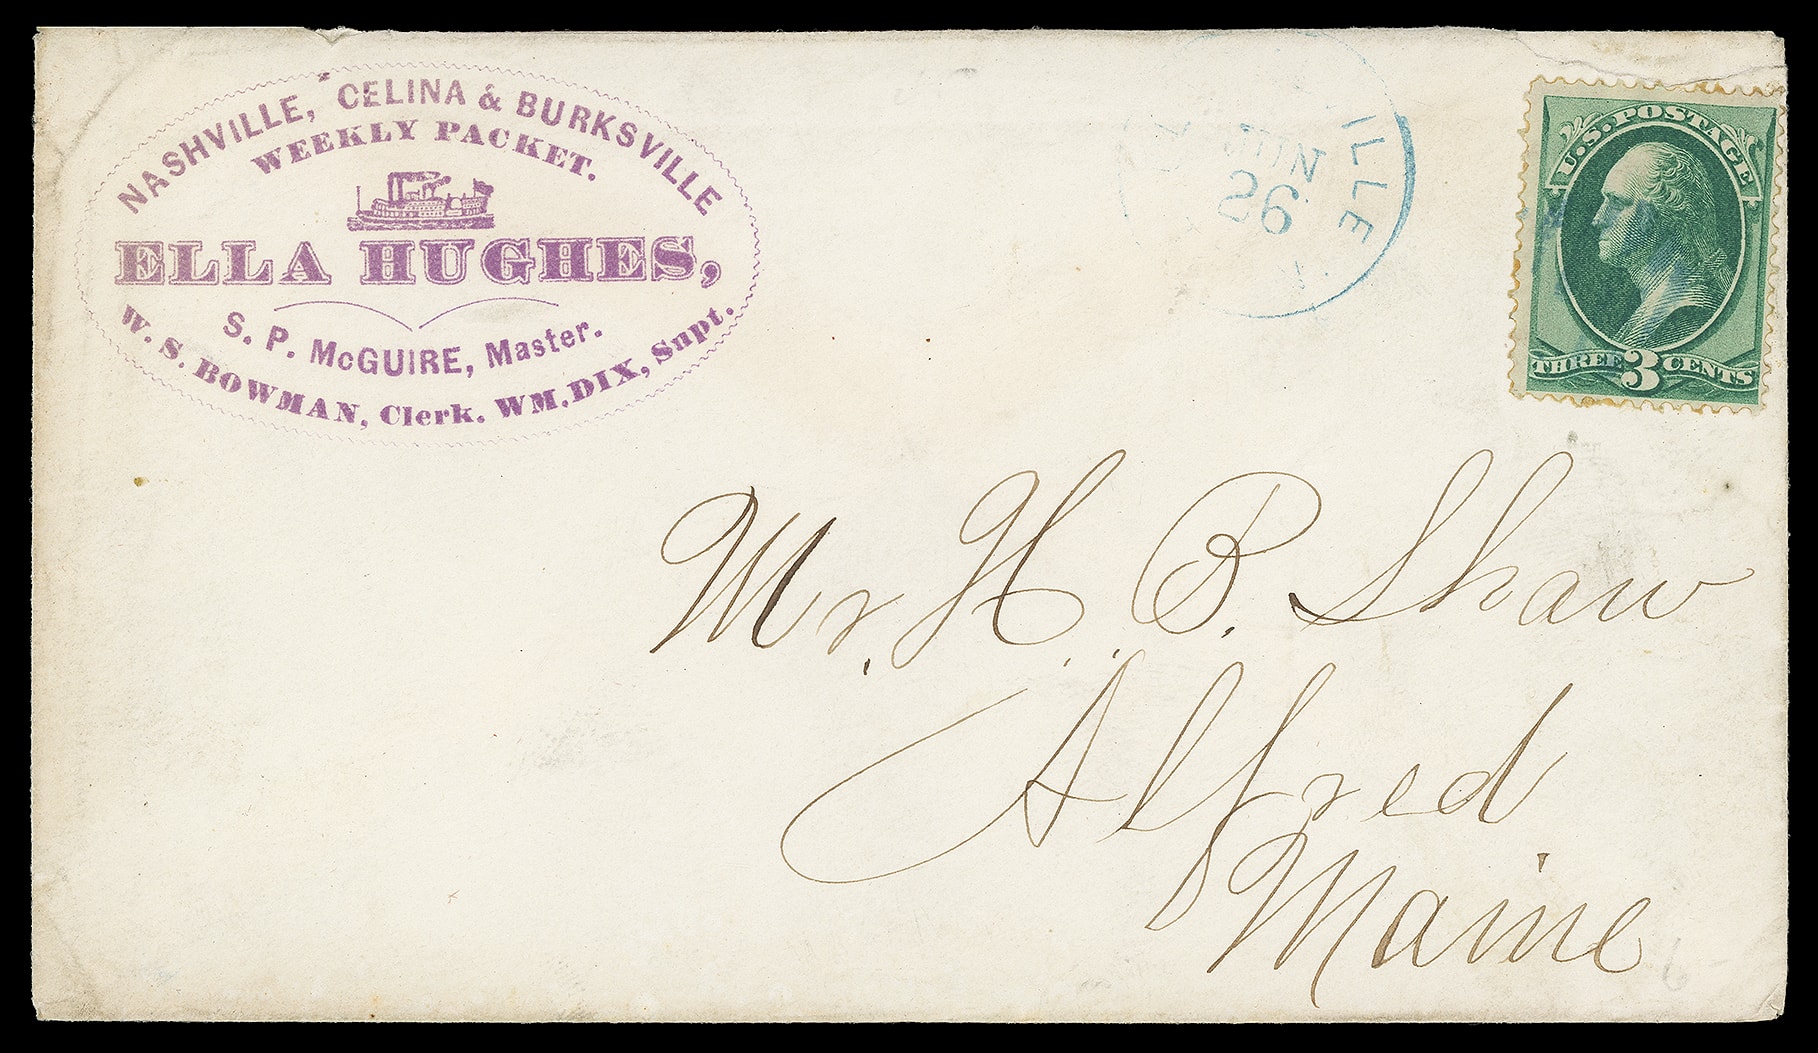 NASHVILLE, CELINA & BURKSVILLE
WEEKLY PACKET.
ELLA HUGHES,
S. P. McGUIRE, Master.
W. S. BOWMAN, Clerk. WM. DIX, Supt.
JUN
26
U.S. POSTAGE
THREE 3 CENTS
Mr. H. B. Shaw
Alfred
Maine